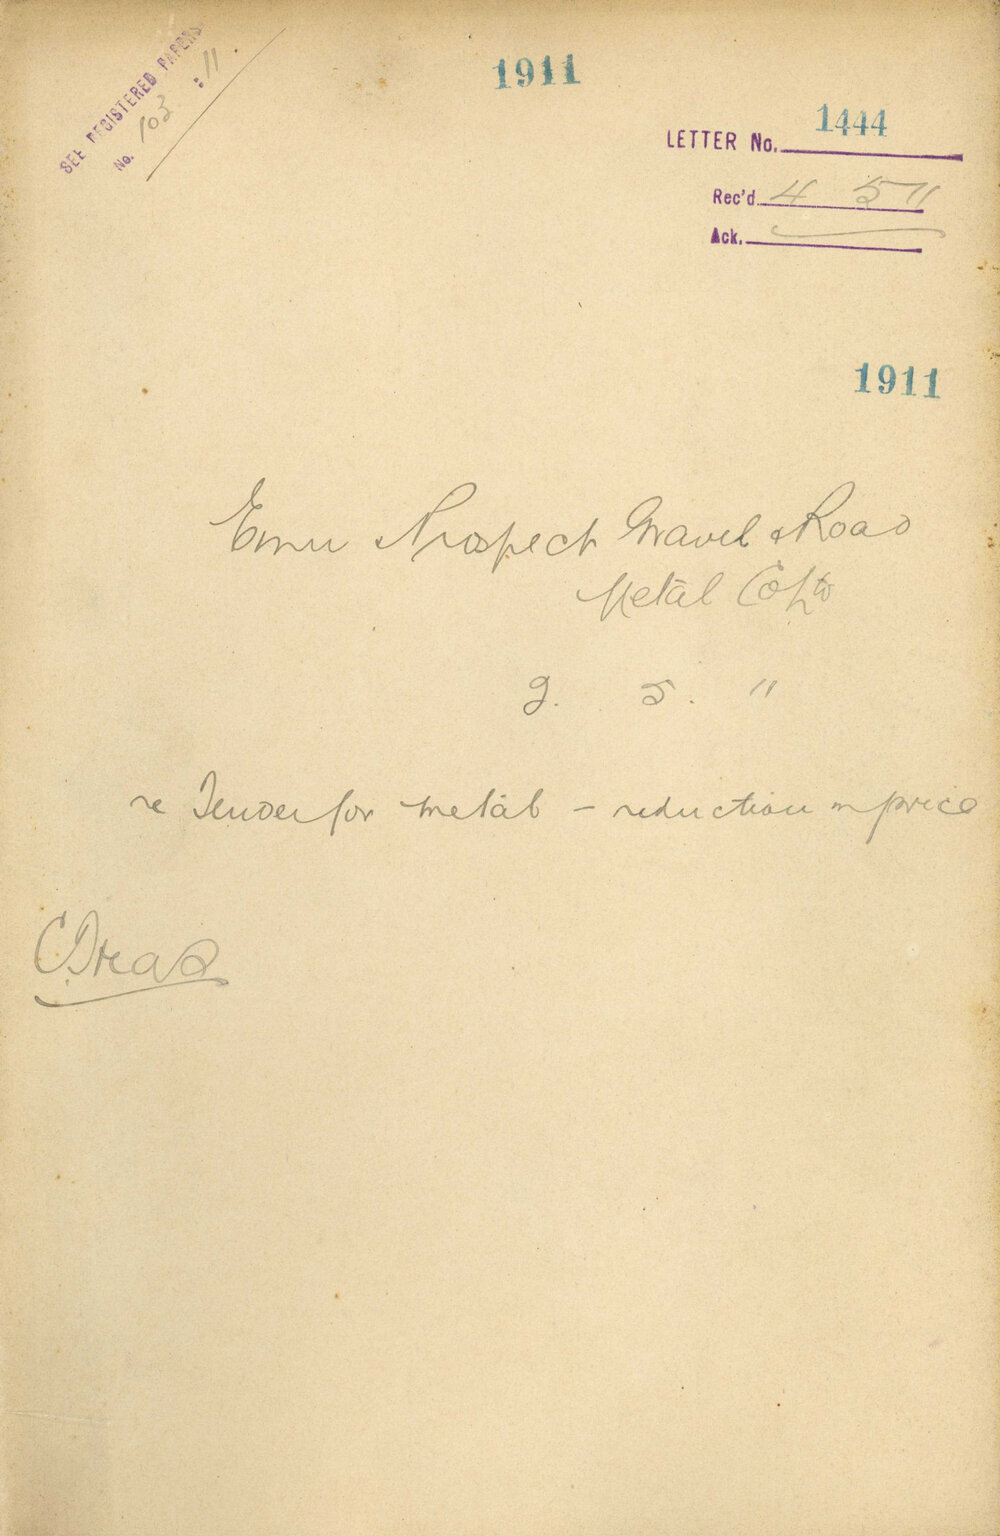 SEE REGISTERED PAPERS
No. 103 : 11
1911
LETTER No. 1444
Rec'd 4 5 11
Ack.
1911
Emu & Prospect Gravel & Road
Metal Co Ltd
5. 11
re Tender for metal - reduction in price